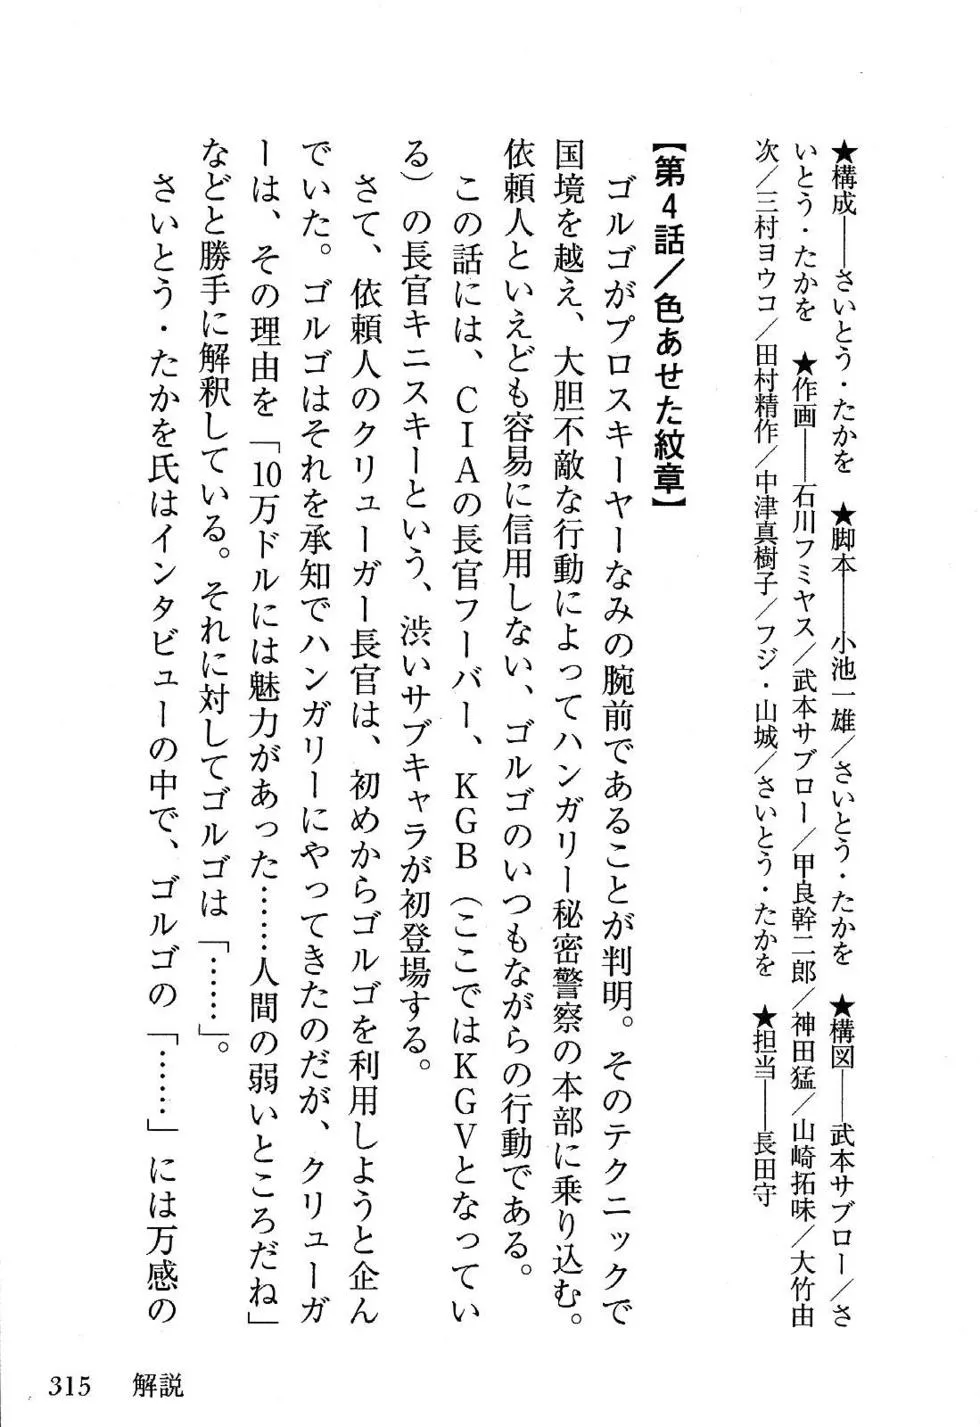 ★構成――さいとう・たかを　★脚本――小池一雄／さいとう・たかを　★構図――武本サブロー／さ
いとう・たかを　★作画――石川フミヤス／武本サブロー／甲良幹二郎／神田猛／山崎拓味／大竹由
次／三村ヨウコ／田村精作／中津真樹子／フジ・山城／さいとう・たかを　★担当――長田守
【第4話／色あせた紋章】
　ゴルゴがプロスキーヤーなみの腕前であることが判明。そのテクニックで
国境を越え、大胆不敵な行動によってハンガリー秘密警察の本部に乗り込む。
依頼人といえども容易に信用しない、ゴルゴのいつもながらの行動である。
　この話には、CIAの長官フーバー、KGB（ここではKGVとなってい
る）の長官キニスキーという、渋いサブキャラが初登場する。
　さて、依頼人のクリューガー長官は、初めからゴルゴを利用しようと企ん
でいた。ゴルゴはそれを承知でハンガリーにやってきたのだが、クリューガ
ーは、その理由を「10万ドルには魅力があった……人間の弱いところだね」
などと勝手に解釈している。それに対してゴルゴは「……」。
　さいとう・たかを氏はインタビューの中で、ゴルゴの「……」には万感の
315　解説